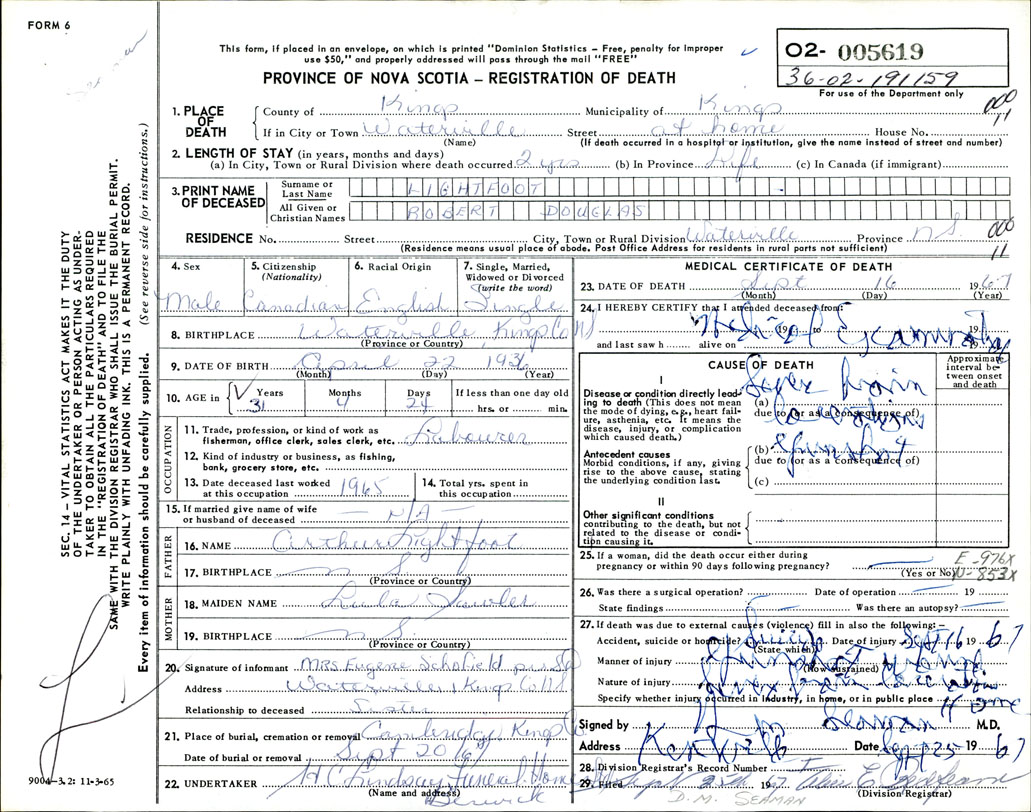 FORM 6
This form, if placed in an envelope, on which is printed "Dominion Statistics – Free, penalty for improper
use $50," and properly addressed will pass through the mail "FREE"
PROVINCE OF NOVA SCOTIA – REGISTRATION OF DEATH
02- 005619
36-02-191159
For use of the Department only
1. PLACE OF DEATH
County of Kings Municipality of Kings
000 11
If in City or Town Waterville Street at home House No.
(Name) (If death occurred in a hospital or institution, give the name instead of street and number)
2. LENGTH OF STAY (in years, months and days)
(a) In City, Town or Rural Division where death occurred 2 yrs (b) In Province Life (c) In Canada (if immigrant)
3. PRINT NAME OF DECEASED
Surname or Last Name LIGHTFOOT
All Given or Christian Names ROBERT DOUGLAS
RESIDENCE No. Street City, Town or Rural Division Waterville Province N.S.
000 11
(Residence means usual place of abode. Post Office Address for residents in rural parts not sufficient)
4. Sex
Male
5. Citizenship (Nationality)
Canadian
6. Racial Origin
English
7. Single, Married, Widowed or Divorced (write the word)
Single
8. BIRTHPLACE Waterville, Kings Co NS
(Province or Country)
9. DATE OF BIRTH April 22 1936
(Month) (Day) (Year)
10. AGE in Years Months Days If less than one day old
31 4 24 hrs. or min.
OCCUPATION
11. Trade, profession, or kind of work as fisherman, office clerk, sales clerk, etc. Labourer
12. Kind of industry or business, as fishing, bank, grocery store, etc.
13. Date deceased last worked at this occupation 1965
14. Total yrs. spent in this occupation
15. If married give name of wife or husband of deceased — N/A —
FATHER
16. NAME Arthur Lightfoot
17. BIRTHPLACE N S
(Province or Country)
MOTHER
18. MAIDEN NAME Lula
19. BIRTHPLACE N S
(Province or Country)
20. Signature of informant Mrs Eugene Schofield
Address Waterville, Kings Co NS
Relationship to deceased Sister
21. Place of burial, cremation or removal Cambridge Kings Co
Date of burial or removal Sept 20/67
22. UNDERTAKER H C Lindsay Funeral Home
(Name and address) Berwick
MEDICAL CERTIFICATE OF DEATH
23. DATE OF DEATH Sept 16 1967
(Month) (Day) (Year)
24. I HEREBY CERTIFY that I attended deceased from:
19 to 19
and last saw h alive on 19
Medical Examiner
CAUSE OF DEATH
Approximate interval between onset and death
I
Disease or condition directly leading to death (This does not mean the mode of dying, e.g., heart failure, asthenia, etc. It means the disease, injury, or complication which caused death.)
(a) brain
due to (or as a consequence of)
laceration
Antecedent causes
Morbid conditions, if any, giving rise to the above cause, stating the underlying condition last.
(b) Gunshot
due to (or as a consequence of)
(c)
II
Other significant conditions
contributing to the death, but not related to the disease or condition causing it.
25. If a woman, did the death occur either during pregnancy or within 90 days following pregnancy?
(Yes or No)
E-976X
N-853X
26. Was there a surgical operation? Date of operation 19
State findings Was there an autopsy?
27. If death was due to external causes (violence) fill in also the following:–
Accident, suicide or homicide? Suicide Date of injury Sept 16 1967
(State which)
Manner of injury Gunshot wound
(How sustained)
Nature of injury brain laceration
Specify whether injury occurred in industry, in home, or in public place Home
Signed by D M Seaman M.D.
Address Kentville Date Sept 25 1967
28. Division Registrar's Record Number
29. Filed 1967
(Division Registrar)
D.M. SEAMAN
SEC. 14 – VITAL STATISTICS ACT MAKES IT THE DUTY
OF THE UNDERTAKER OR PERSON ACTING AS UNDER-
TAKER TO OBTAIN ALL THE PARTICULARS REQUIRED
IN THE "REGISTRATION OF DEATH" AND TO FILE THE
SAME WITH THE DIVISION REGISTRAR WHO SHALL ISSUE THE BURIAL PERMIT.
WRITE PLAINLY WITH UNFADING INK. THIS IS A PERMANENT RECORD.
Every item of information should be carefully supplied. (See reverse side for instructions.)
9004-3.2: 11-3-65